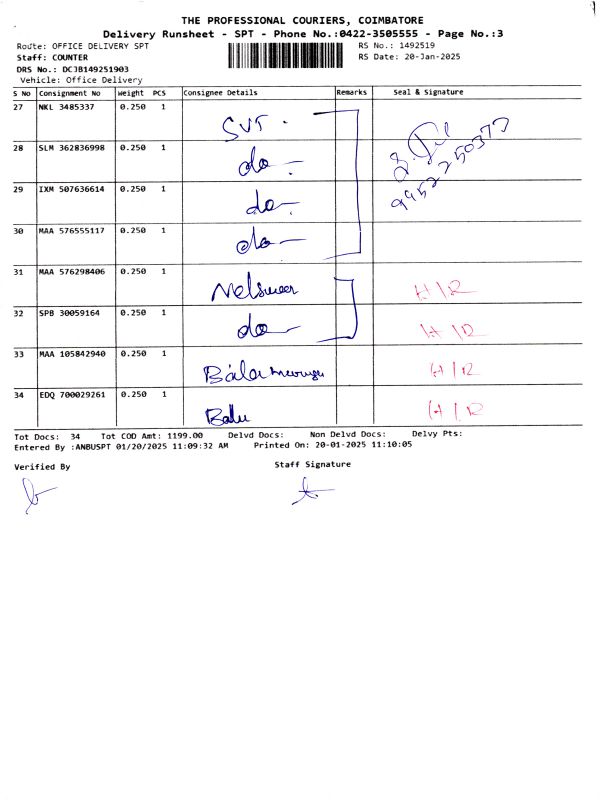 THE PROFESSIONAL COURIERS, COIMBATORE
Delivery Runsheet - SPT - Phone No.:0422-3505555 - Page No.:3
Route: OFFICE DELIVERY SPT RS No.: 1492519
Staff: COUNTER RS Date: 20-Jan-2025
DRS No.: DCJB149251903
Vehicle: Office Delivery
S No Consignment No Weight PCS Consignee Details Remarks Seal & Signature
27 NKL 3485337 0.250 1 SVT.
28 SLM 362836998 0.250 1 do -
29 IXM 507636614 0.250 1 do -
9952250373
30 MAA 576555117 0.250 1 do -
31 MAA 576298406 0.250 1 H/R
32 SPB 30059164 0.250 1 do - H/R
33 MAA 105842940 0.250 1 H/R
34 EDQ 700029261 0.250 1 Balu H/R
Tot Docs: 34 Tot COD Amt: 1199.00 Delvd Docs: Non Delvd Docs: Delvy Pts:
Entered By :ANBUSPT 01/20/2025 11:09:32 AM Printed On: 20-01-2025 11:10:05
Verified By Staff Signature